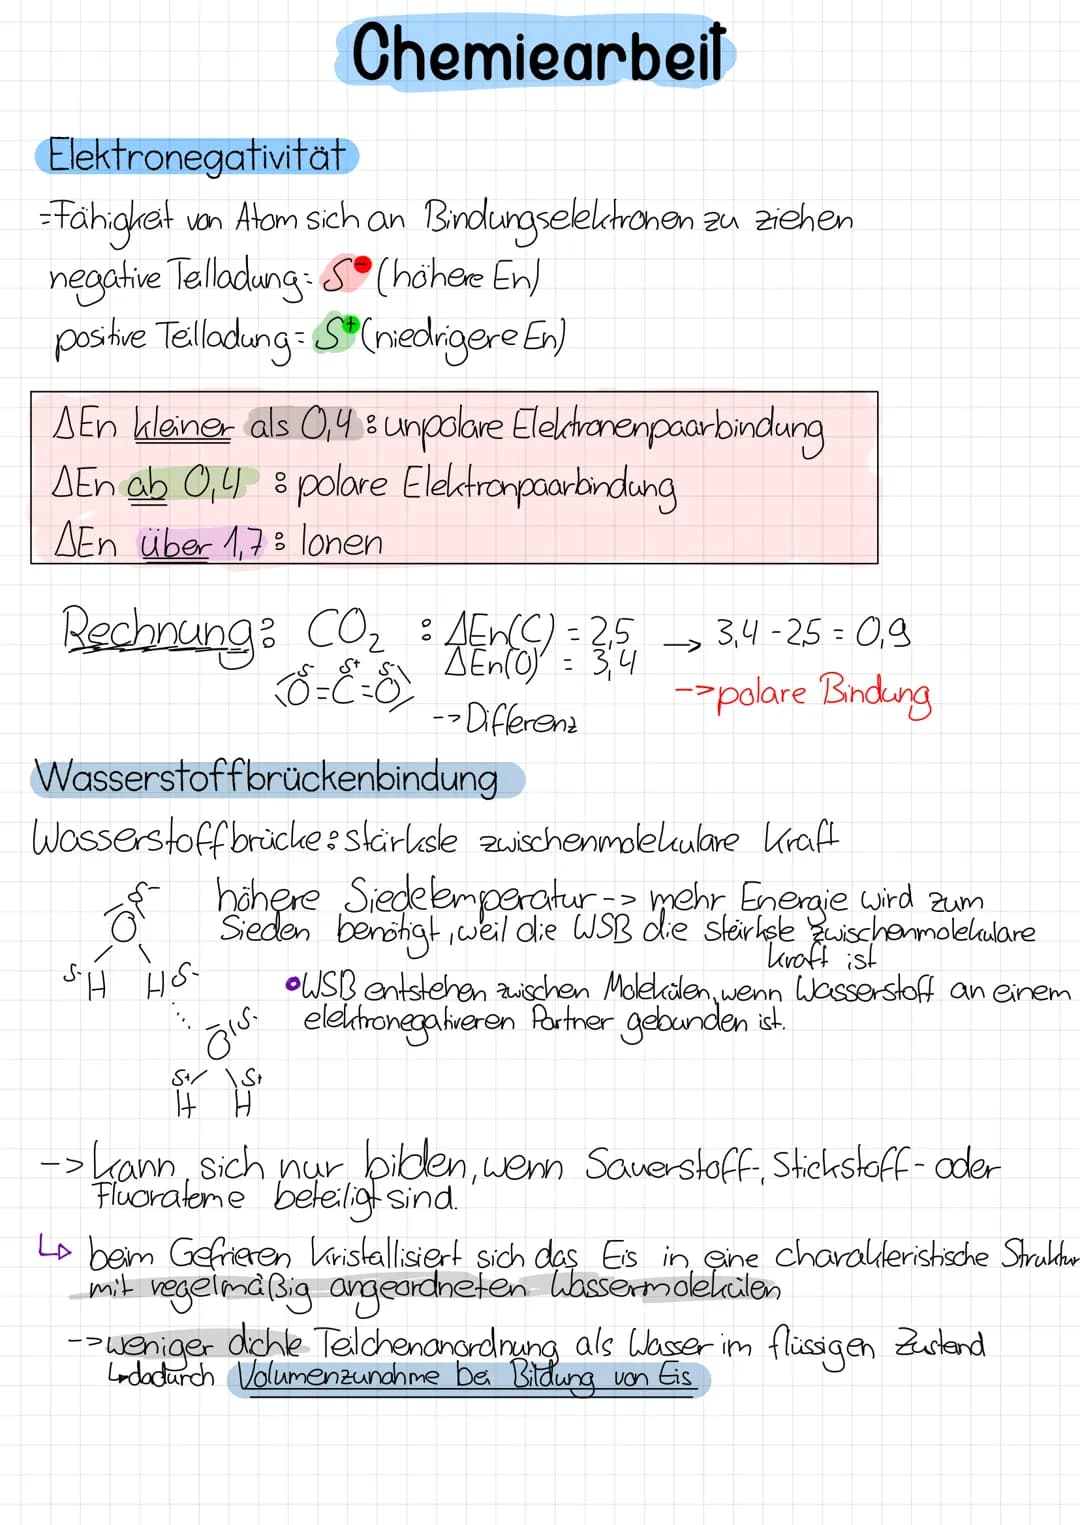 Chemiearbeit
Elektronegativität
=Fähigkeit von Atom sich an Bindungselektronen zu ziehen
negative Teilladung: δ⁻ (höhere En)
positive Teilladung= δ⁺ (niedrigere En)
ΔEn kleiner als 0,4 : unpolare Elektronenpaarbindung
ΔEn ab 0,4 : polare Elektronpaarbindung
ΔEn über 1,7 : Ionen
Rechnung: CO₂ : ΔEn(C) = 2,5 → 3,4 - 2,5 = 0,9
ΔEn(O) = 3,4
δ⁻ δ⁺ δ⁻
O=C=O
->polare Bindung
-->Differenz
Wasserstoffbrückenbindung
Wasserstoffbrücke: stärkste zwischenmolekulare Kraft
höhere Siedetemperatur --> mehr Energie wird zum
Sieden benötigt, weil die WSB die stärkste zwischenmolekulare
Kraft ist
δ⁻
O
δ- H H δ-
•WSB entstehen zwischen Molekülen, wenn Wasserstoff an einem
elektronegativeren Partner gebunden ist.
O δ-
δ+ δ+
H H
-->kann sich nur bilden, wenn Sauerstoff-, Stickstoff- oder
Fluoratome beteiligt sind.
↳ beim Gefrieren kristallisiert sich das Eis in eine charakteristische Struktur
mit regelmäßig angeordneten Wassermolekülen
-->weniger dichte Teilchenanordnung als Wasser im flüssigen Zustand
↳dadurch Volumenzunahme bei Bildung von Eis